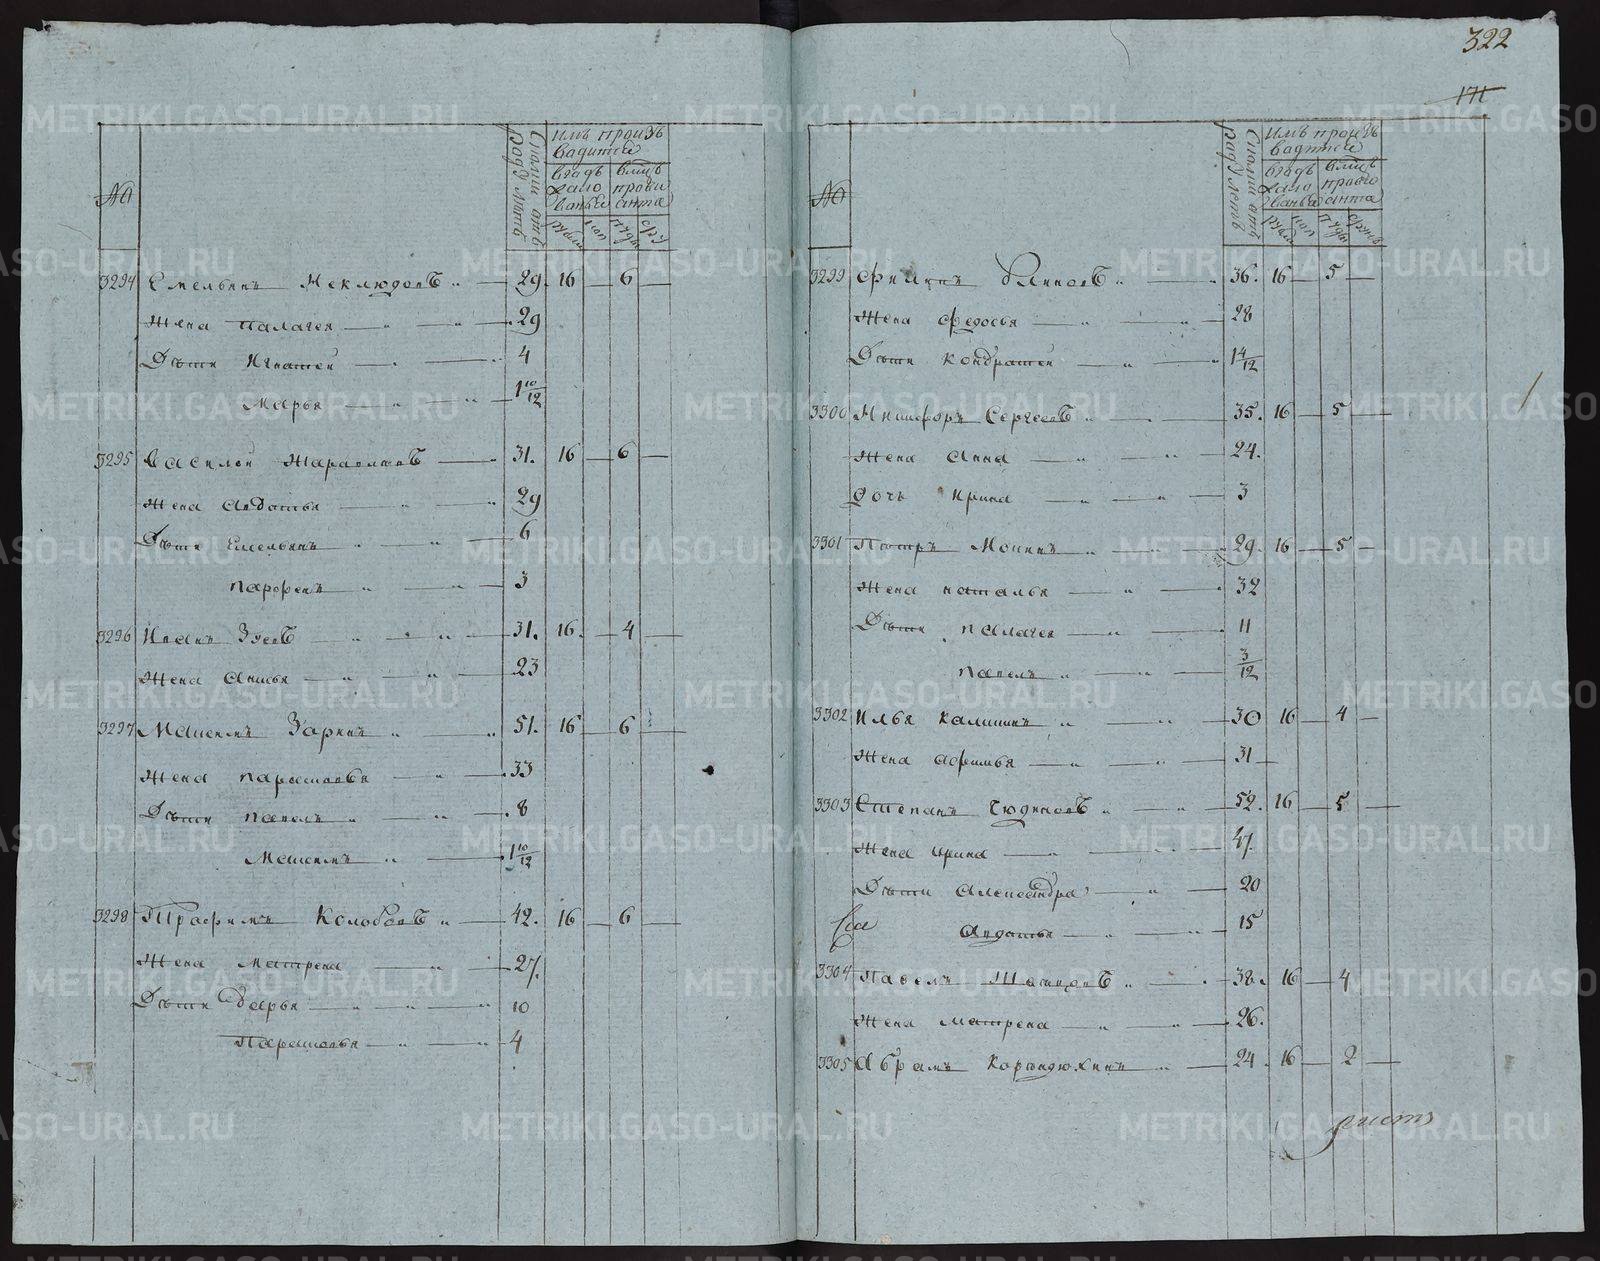 322
171
№
Сколко отъ роду летъ
имъ произъ
вадитца
вгодъ
жало
ванья
вмцъ
прови
анта
рубли
коп
пуды
фун
3294 Емельянъ Неклюдовъ 29. 16 — 6 —
Жена Палагея 29
Дѣти Игнатей 4
Марья 1 10/12
3295 Василей Жаравлевъ 31. 16 — 6 —
Жена Авдотья 29
Дѣти Емельянъ 6
Парфенъ 3
3296 Иванъ Зуевъ 31. 16. — 4 —
Жена Анисья 23
3297 Максимъ Заринъ 51. 16 — 6 —
Жена Парасковья 33
Дѣти Павелъ 8
Максимъ 1 10/12
3298 Трафимъ Колобовъ 42. 16 — 6 —
Жена Матрена 27.
Дѣти Дарья 10
Парасковья 4
№
Сколко отъ роду летъ
имъ произъ
вадитца
вгодъ
жало
ванья
вмцъ
провы
анта
рубли
коп
пуды
фунъ
3299 Филипъ Блиновъ 36. 16 — 5 —
Жена Федосья 28
Дѣти Кондратей 1 4/12
3300 Никифоръ Сергеевъ 35. 16 — 5 —
Жена Анна 24.
Дочь Ирина 3
3301 Петръ Мокинъ 29. 16 — 5 —
Жена Наталья 32
Дѣти Палагея 11
Павелъ 3/12
3302 Илья Калининъ 30 16 — 4 —
Жена Афимья 31
3303 Степанъ Чюдиновъ 52. 16 — 5 —
Жена Ирина 47.
Дѣти Александра 20
Авдотья 15
3304 Павелъ 38. 16 — 4
Жена Матрена 26.
3305 Абрамъ Карындюкинъ 24. 16 — 2 —
METRIKI.GASO-URAL.RU